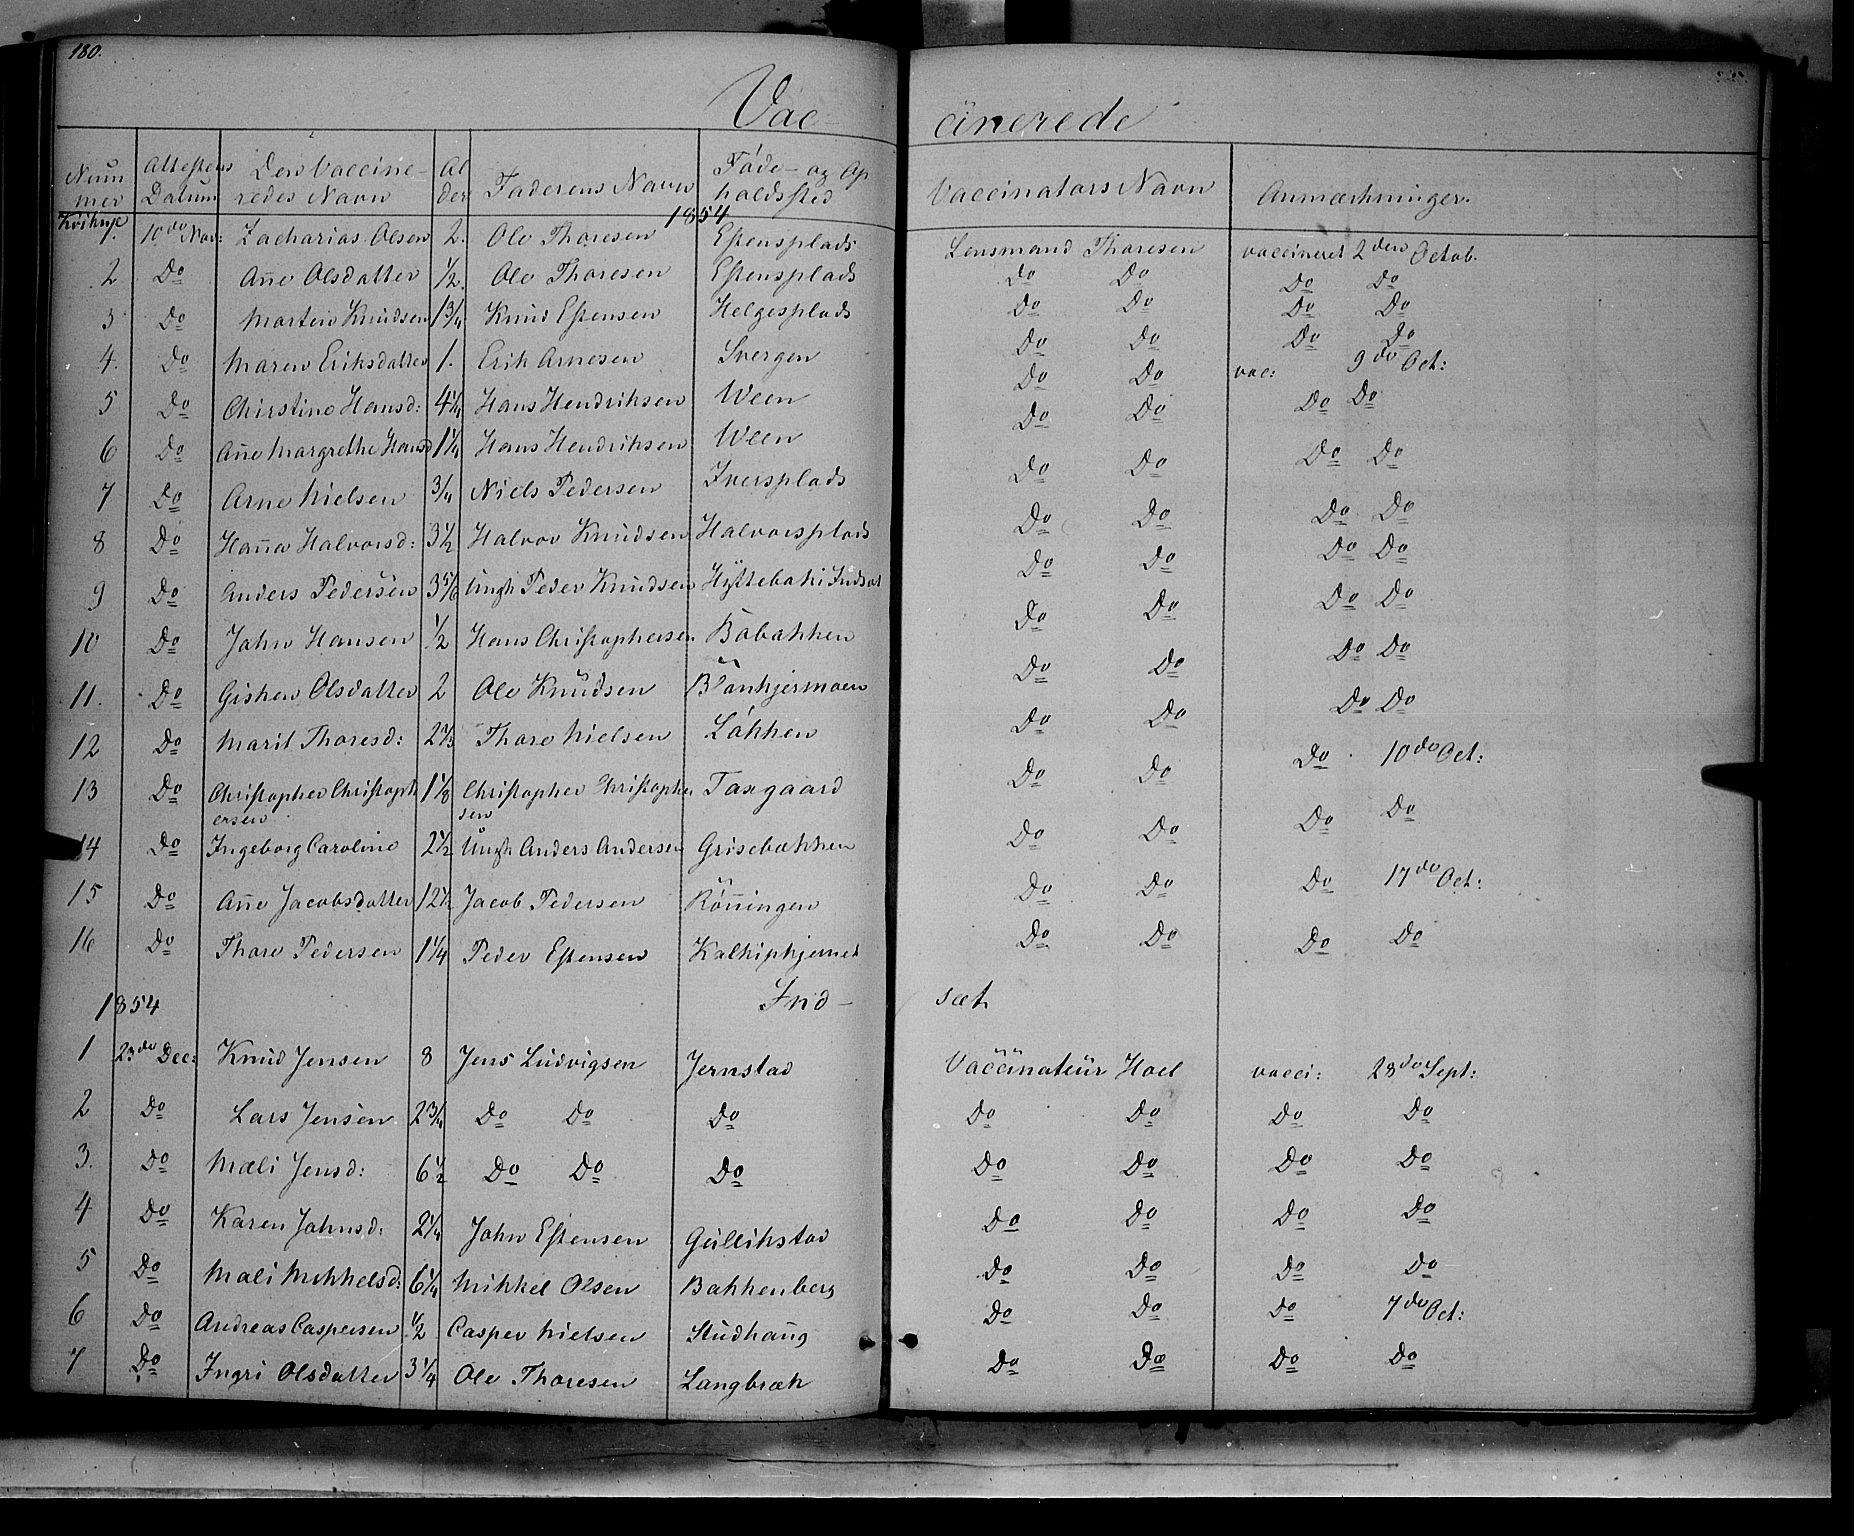 180.
Vac- cinerede
Num mer | Attestens Datum | Den Vaccine- redes Navn | Al der | Faderens Navn | Føde- og Op holdssted | Vaccinators Navn | Anmærkninger.
1854
1. | 10de Nov: | Zacharias Olsen | 2. | Ole Thoresen | Estensplads | Lensmand Thoresen | vaccineret 2den Octob.
2 | Do | Añe Olsdatter | 1/2. | Ole Thoresen | Estensplads | Do Do | Do Do
3 | Do | Morten Knudsen | 1 3/4 | Knud Estensen | Helgesplads | Do Do | Do Do
4. | Do | Maren Eriksdatter | 1. | Erik Arnesen | Svergen | Do Do | Do Do
5 | Do | Chirstine Hansd: | 4 1/4 | Hans Hendriksen | Ween | Do Do | vac: 9de Oct:
6 | Do | Añe Margrethe Hansd | 1 1/4 | Hans Hendriksen | Ween | Do Do | Do Do
7 | Do | Arne Nielsen | 3/4 | Niels Pedersen | Iversplads | Do Do | Do Do
8 | Do | Haña Halvorsd: | 3 1/2 | Halvor Knudsen | Halvorsplads | Do Do | Do Do
9 | Do | Anders Pedersen | 3 5/6 | Ungk Peder Knudsen | Hyttebaki Indset | Do Do | Do Do
10 | Do | John Hansen | 1/2 | Hans Christophersen | Bobakken | Do Do | Do Do
11. | Do | Gisken Olsdatter | 2 | Ole Knudsen | Bönkjermoen | Do Do | Do Do
12 | Do | Marit Thoresd: | 2 1/3 | Thore Nielsen | Løkken | Do Do | Do Do
13 | Do | Christopher Christoph ersen | 1 1/8 | Christopher Christopher sen | Taxgaard | Do Do | Do 10de Oct:
14 | Do | Ingeborg Caroline | 2 1/2 | Ungk Anders Andersen | Grisebakken | Do Do | Do Do
15 | Do | Añe Jacobsdatter | 12 1/2 | Jacob Pedersen | Röñingen | Do Do | Do 17de Oct:
16 | Do | Thore Pedersen | 1 1/4 | Peder Estensen | Kalkipkjernet | Do Do | Do Do
1854 Ind- set
1 | 23de Dec: | Knud Jensen | 8 | Jens Ludvigsen | Jernstad | Vaccinateur Hoel | vacci: 28de Sept:
2 | Do | Lars Jensen | 2 3/4 | Do Do | Do | Do Do | Do Do
3. | Do | Mali Jensd: | 6 1/2 | Do Do | Do | Do Do | Do Do
4 | Do | Karen Johnsd: | 2 1/4 | John Estensen | Gullikstad | Do Do | Do Do
5 | Do | Mali Mikkelsd: | 6 1/4 | Mikkel Olsen | Bakkenberg | Do Do | Do Do
6 | Do | Andreas Caspersen | 1/2 | Casper Nielsen | Studhaug | Do Do | Do 7de Oct:
7 | Do | Ingri Olsdatter | 3 1/4 | Ole Thoresen | Langbræk | Do Do | Do Do